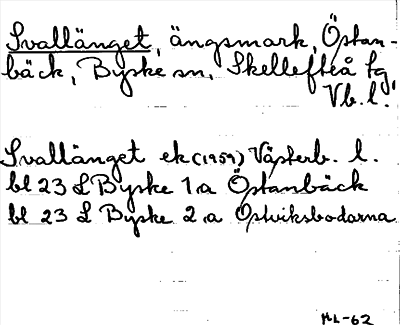 Svallänget, ängsmark, Östan-
bäck, Byske sn, Skellefteå tg,
Vb. l.
Svallänget ek (1959) Västerb. l.
bl 23 L Byske 1 a Östanbäck
bl 23 L Byske 2 a Ostviksbodarna
ML-62